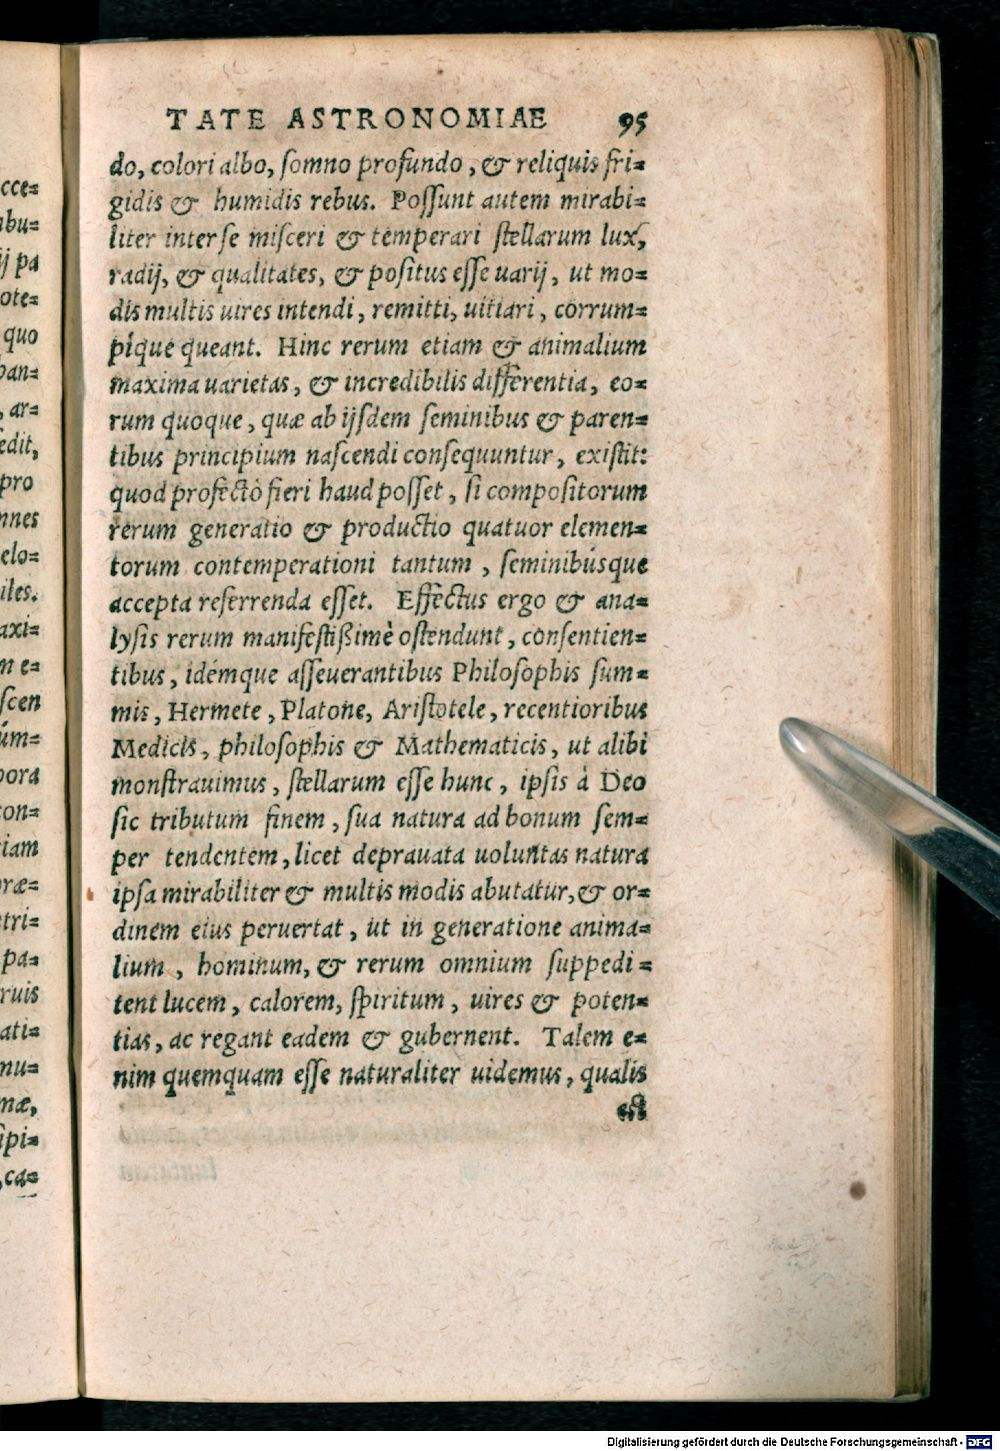 TATE ASTRONOMIAE 95
do, colori albo, ſomno profundo, & reliquis fri=
gidis & humidis rebus. Poſſunt autem mirabi=
liter inter ſe miſceri & temperari ſtellarum lux,
radij, & qualitates, & poſitus eſſe uarij, ut mo=
dis multis uires intendi, remitti, uitiari, corrum=
píque queant. Hinc rerum etiam & animalium
maxima uarietas, & incredibilis differentia, eo=
rum quoque, quæ ab ijſdem ſeminibus & paren=
tibus principium naſcendi conſequuntur, exiſtit:
quod profectò fieri haud poſſet, ſi compoſitorum
rerum generatio & productio quatuor elemen=
torum contemperationi tantum, ſeminibúsque
accepta referrenda eſſet. Effectus ergo & ana=
lyſis rerum manifeſtißimè oſtendunt, conſentien=
tibus, idémque aſſeuerantibus Philoſophis ſum=
mis, Hermete, Platone, Ariſtotele, recentioribus
Medicis, philoſophis & Mathematicis, ut alibi
monſtrauimus, ſtellarum eſſe hunc, ipſis à Deo
ſic tributum finem, ſua natura ad bonum ſem=
per tendentem, licet deprauata uoluntas natura
ipſa mirabiliter & multis modis abutatur, & or=
dinem eius peruertat, ut in generatione anima=
lium, hominum, & rerum omnium ſuppedi=
tent lucem, calorem, ſpiritum, uires & poten=
tias, ac regant eadem & gubernent. Talem e=
nim quemquam eſſe naturaliter uidemus, qualis
eſt
cce=
abu=
ij pa
ote=
quo
ban=
, ar=
edit,
pro
nnes
elo=
iles.
axi=
m e=
ſcen
úm=
pora
con=
tiam
præ=
tri=
pa=
ruis
ati=
nu=
næ,
ſipi=
,ca=
Digitalisierung gefördert durch die Deutsche Forschungsgemeinschaft - DFG